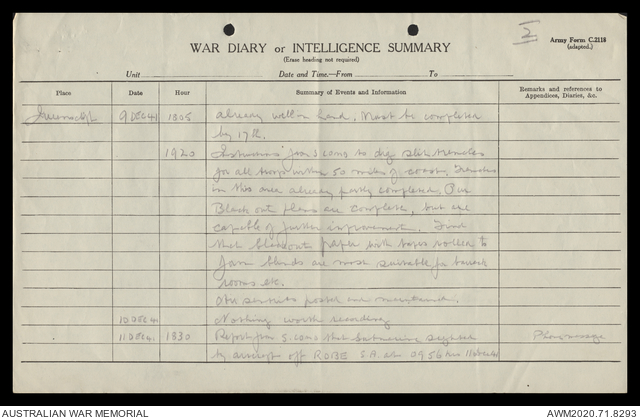 I
Army Form C.2118
(adapted.)
WAR DIARY or INTELLIGENCE SUMMARY
(Erase heading not required)
Unit
Date and Time.—From To
Place Date Hour Summary of Events and Information Remarks and references to Appendices, Diaries, &c.
9 DEC 41 1805 already well in hand. Must be completed
by 17th.
1920 Instructions from S Comd to dig slit trenches
for all troops within 50 miles of coast. Trenches
in this area already partly completed. Our
Black out plans are complete, but are
capable of further improvement. Find
that blackout paper with tapes rolled to
form blinds are most suitable for barrack
rooms etc.
10 DEC 41 Nothing worth recording
11 DEC 41 1830 Report from S. Comd that Submarine sighted Phone message
by aircraft off ROBE S.A. at 0956 hrs 11 Dec 41
AUSTRALIAN WAR MEMORIAL
AWM2020.71.8293